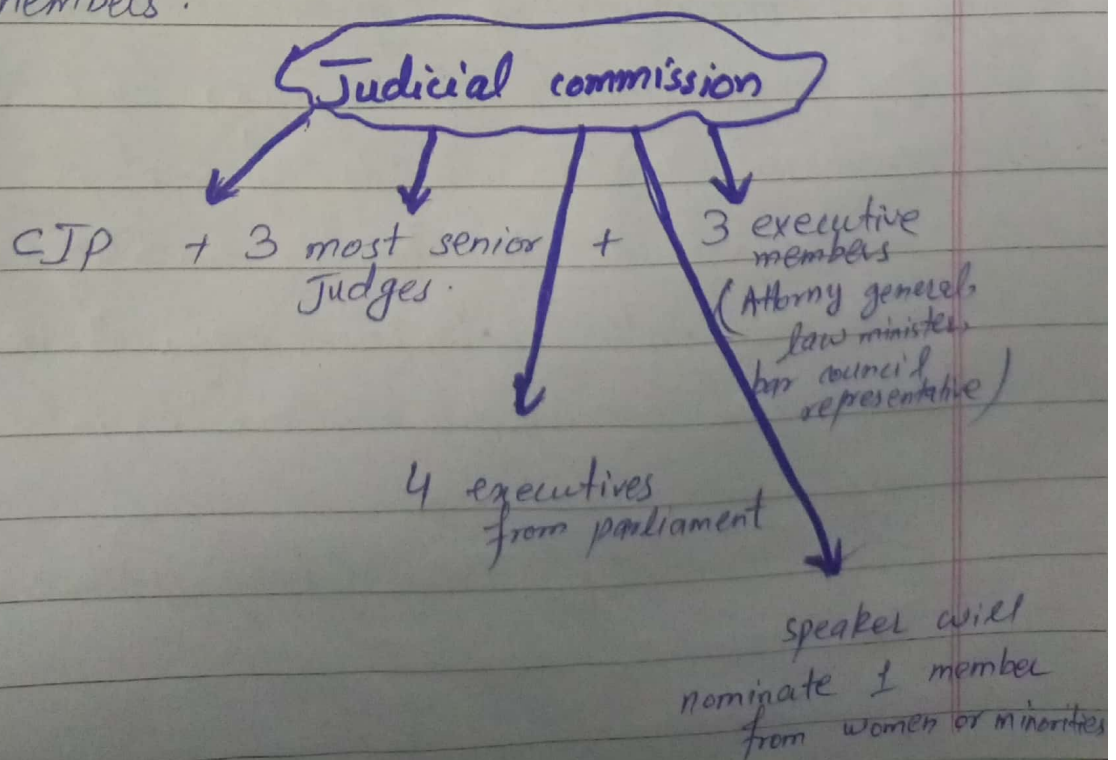 members.
Judicial commission
CJP + 3 most senior + 3 executive
Judges. members
(Attorny general,
law minister,
bar council
representative)
4 executives
from parliament
speaker will
nominate 1 member
from women or minorities